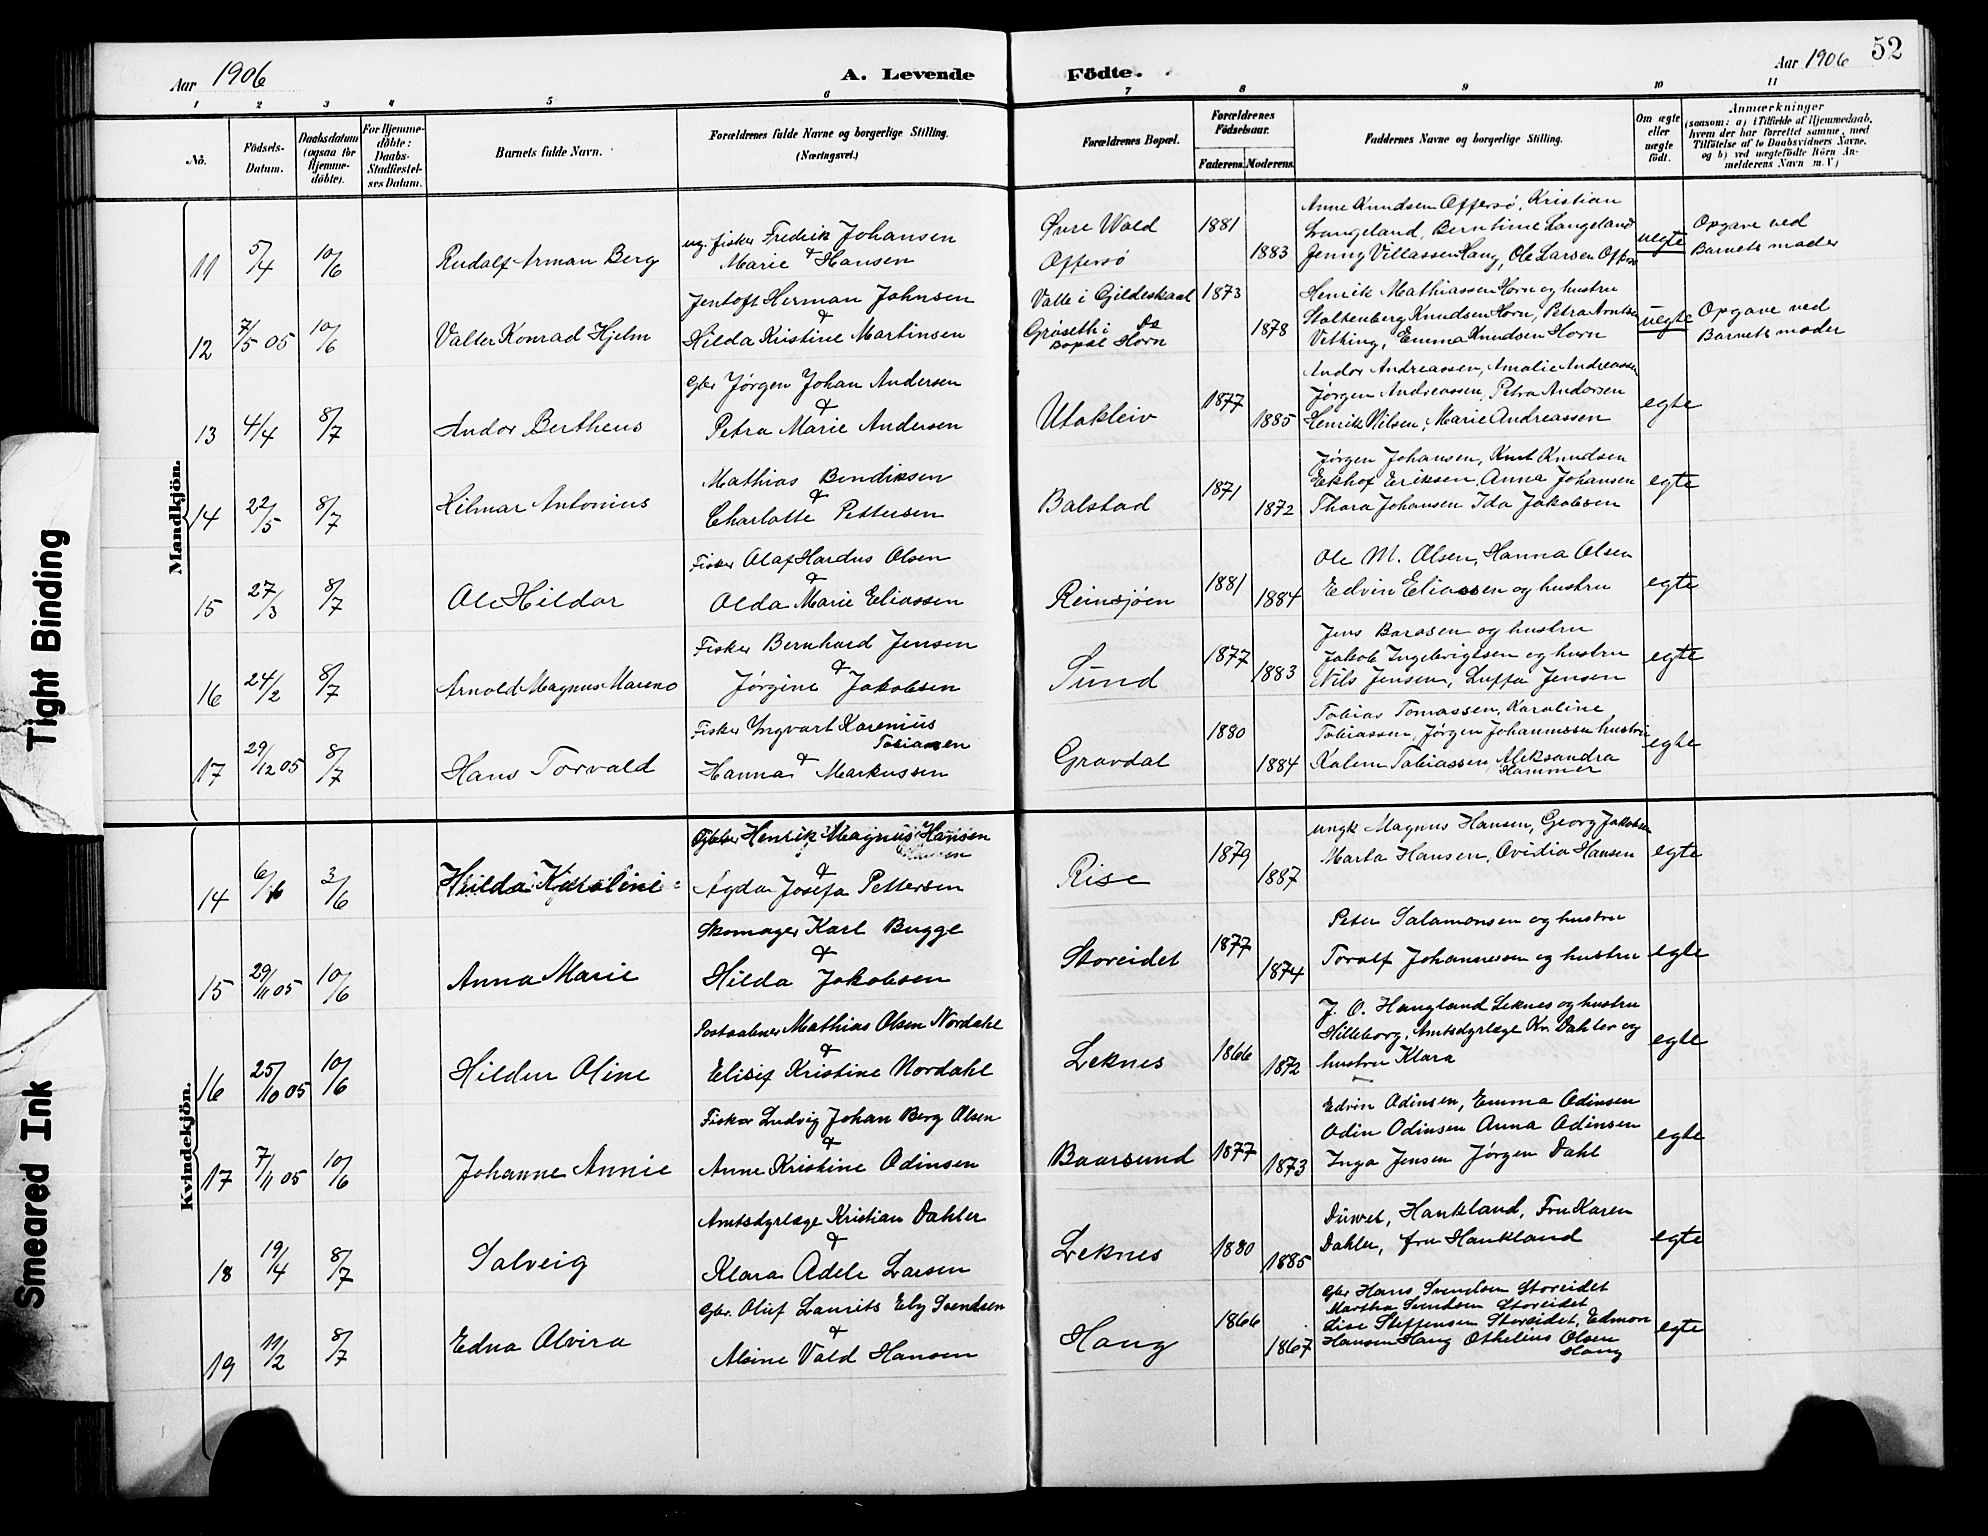 Tight Binding
Smeared Ink
Aar 1906
A. Levende
Födte.
Aar 1906
52
1 2 3 4 5 6 7 8 9 10 11
No.
Födsels-
Datum.
Daabsdatum
(ogsaa for
Hjemme-
döbte).
For Hjemme-
döbte:
Daabs-
Stadfæstel-
ses Datum.
Barnets fulde Navn.
Forældrenes fulde Navne og borgerlige Stilling.
(Næringsvei.)
Forældrenes Bopæl.
Forældrenes
Födselsaar.
Faderens. Moderens.
Faddernes Navne og borgerlige Stilling.
Om ægte
eller
uægte
födt.
Anmærkninger
(saasom: a) i Tilfælde af Hjemmedaab,
hvem der har forrettet samme, med
Tilföielse af to Daabsvidners Navne,
og b) ved uægtefödte Börn An-
melderens Navn m. V.)
Mandkjön.
11 5/4 10/6 Rudolf Arman Berg
ug. fisker Fredrik Johansen
&
Marie Hansen
Øvre Wold
Offersø
1881 1883
Anne Knudsen Offersø, Kristian
Langeland, Berntine Langeland
Jenny Villassen Haug, Ole Larsen Offersø
uegte
Opgave ved
Barnets moder
12 7/5 05 10/6 Valter Konrad Hjelm
Jentoft Herman Johnsen
&
Hilda Kristine Martinsen
Valle i Gildeskaal
Grøseth i Do
Bopæl Horn
1873 1878
Henrik Mathiassen Horn og hustru
Stoltenberg Knudsen Horn, Petra Arntsen
Vetting, Emma Knudsen Horn
uegte
Opgave ved
Barnets moder
13 4/4 8/7 Andor Bertheus
Gbr Jørgen Johan Andersen
&
Petra Marie Andersen
Utakleiv
1877 1885
Andor Andreassen, Amalie Andreassen
Jørgen Andreassen, Petra Andersen
Henrik Nilsen, Marie Andreassen
egte
14 22/5 8/7 Hilmar Antonius
Mathias Bendiksen
&
Charlotte Pettersen
Balstad
1871 1872
Jørgen Johansen, Knut Knudsen
Ekhof Eriksen, Anna Johansen
Thora Johansen Ida Jakobsen
egte
15 27/3 8/7 Ole Hildor
Fisker Olaf Hardus Olsen
&
Olda Marie Eliassen
Reinsjøen
1881 1884
Ole M. Olsen, Hanna Olsen
Edvin Eliassen og hustru
egte
16 24/2 8/7 Arnold Magnus Mareno
Fisker Bernhard Jensen
&
Jørgine Jakobsen
Sund
1877 1883
Jens Barosen og hustru
Jakob Ingebrigtsen og hustru
Nils Jensen, Luffa Jensen
egte
17 29/12 05 8/7 Hans Torvald
Fisker Yngvart Karenius
Tobiassen
&
Hanna Markussen
Gravdal
1880 1884
Tobias Tomassen, Karoline
Tobiassen, Jørgen Johannessen hustru
Kalem Tobiassen, Aleksandra
Hammer
egte
Kvindekjön.
14 6/6 3/6 Hilda Karoline
Gbr Henrik Magnus Hansen
&
Agda Josefa Pettersen
Rise
1879 1887
ungk Magnus Hansen, Georg Jakobsen
Marta Hansen, Ovidia Hansen
egte
15 29/11 05 10/6 Anna Marie
Skomager Karl Bugge
&
Hilda Jakobsen
Storeidet
1877 1874
Peter Salamonsen og hustru
Toralf Johannessen og hustru
egte
16 25/10 05 10/6 Hildur Oline
Postaabner Mathias Olsen Nordahl
&
Elisif Kristine Nordahl
Leknes
1866 1872
J. O. Haugland Leknes og hustru
Hilleborg, Amtsdyrlæge Kr. Dahler og
hustru Klara
egte
17 7/11 05 10/6 Johanne Annie
Fisker Ludvig Johan Berg Olsen
&
Anne Kristine Odinsen
Baarsund
1877 1873
Edvin Odinsen, Emma Odinsen
Odin Odinsen Anna Odinsen
Inga Jensen Jørgen Dahl
egte
18 19/4 8/7 Solveig
Amtsdyrlæge Kristian Dahler
&
Klara Adele Larsen
Leknes
1880 1885
Düwel, Haukland, Fru Karen
Dahler, fru Haukland
egte
19 11/2 8/7 Edna Alvira
Gbr. Oluf Laurits Eby Svendsen
&
Alvine Vald Hansen
Haug
1866 1867
Gbr Hans Svendsen Storeidet
Martha Svendsen Storeidet
Lise Steffensen Storeidet, Edmon
Hansen Haug Othelius Olsen
Haug
egte